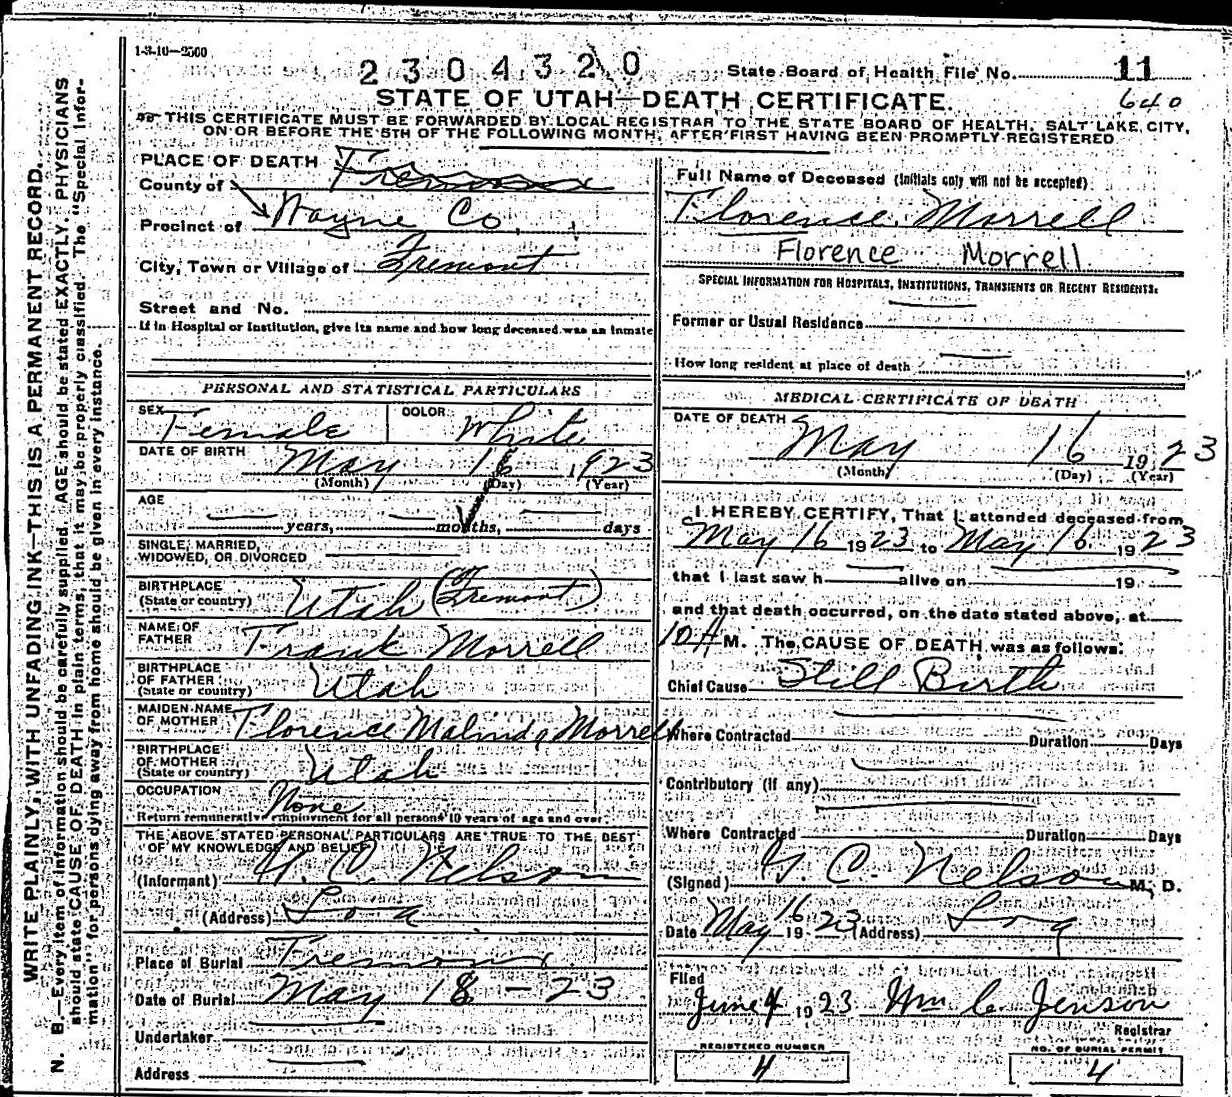 1-3-10—2500
2304320
State Board of Health File No. 11
640
STATE OF UTAH—DEATH CERTIFICATE.
THIS CERTIFICATE MUST BE FORWARDED BY LOCAL REGISTRAR TO THE STATE BOARD OF HEALTH, SALT LAKE CITY,
ON OR BEFORE THE 5TH OF THE FOLLOWING MONTH, AFTER FIRST HAVING BEEN PROMPTLY REGISTERED
PLACE OF DEATH
County of Fremont
Precinct of Wayne Co.
City, Town or Village of Fremont
Street and No.
If in Hospital or Institution, give its name and how long deceased was an inmate
PERSONAL AND STATISTICAL PARTICULARS
SEX Female COLOR White
DATE OF BIRTH May 16 1923
(Month) (Day) (Year)
AGE
years, months, days
SINGLE, MARRIED,
WIDOWED, OR DIVORCED
BIRTHPLACE
(State or country) Utah (Fremont)
NAME OF
FATHER Frank Morrell
BIRTHPLACE
OF FATHER
(State or country) Utah
MAIDEN NAME
OF MOTHER Florence Malinda Morrell
BIRTHPLACE
OF MOTHER
(State or country) Utah
OCCUPATION None
Return remunerative employment for all persons 10 years of age and over
THE ABOVE STATED PERSONAL PARTICULARS ARE TRUE TO THE BEST
OF MY KNOWLEDGE AND BELIEF
(Informant) C. Nelson
(Address) Loa
Place of Burial Fremont
Date of Burial May 18 - 23
Undertaker
Address
Full Name of Deceased (Initials only will not be accepted)
Florence Morrell
Florence Morrell
SPECIAL INFORMATION FOR HOSPITALS, INSTITUTIONS, TRANSIENTS OR RECENT RESIDENTS:
Former or Usual Residence
How long resident at place of death
MEDICAL CERTIFICATE OF DEATH
DATE OF DEATH
May 16 1923
(Month) (Day) (Year)
I HEREBY CERTIFY, That I attended deceased from
May 16 1923 to May 16 1923
that I last saw h alive on 19
and that death occurred, on the date stated above, at
10 A M. The CAUSE OF DEATH was as follows:
Chief Cause Still Birth
Where Contracted Duration Days
Contributory (if any)
Where Contracted Duration Days
(Signed) C. Nelson M. D.
Date May 16 1923 (Address) Loa
Filed
June 4 1923 Wm C. Jenson
Registrar
REGISTERED NUMBER
4
NO. OF BURIAL PERMIT
4
WRITE PLAINLY, WITH UNFADING INK—THIS IS A PERMANENT RECORD.
N. B.—Every item of information should be carefully supplied. AGE should be stated EXACTLY. PHYSICIANS
should state CAUSE OF DEATH in plain terms, that it may be properly classified. The "Special Infor-
mation" for persons dying away from home should be given in every instance.